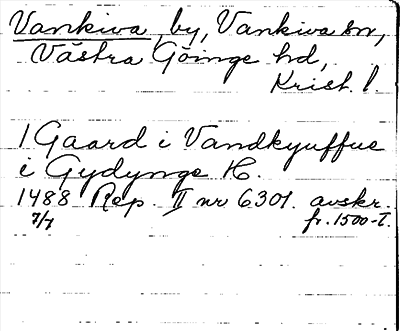 Vankiva, by, Vankiva sn,
Västra Göinge hd,
Krist. l.
1 Gaard i Vandkyuffue
i Gydynge H.
1488 Rep. II nr 6301. avskr.
7/7 fr. 1500-t.